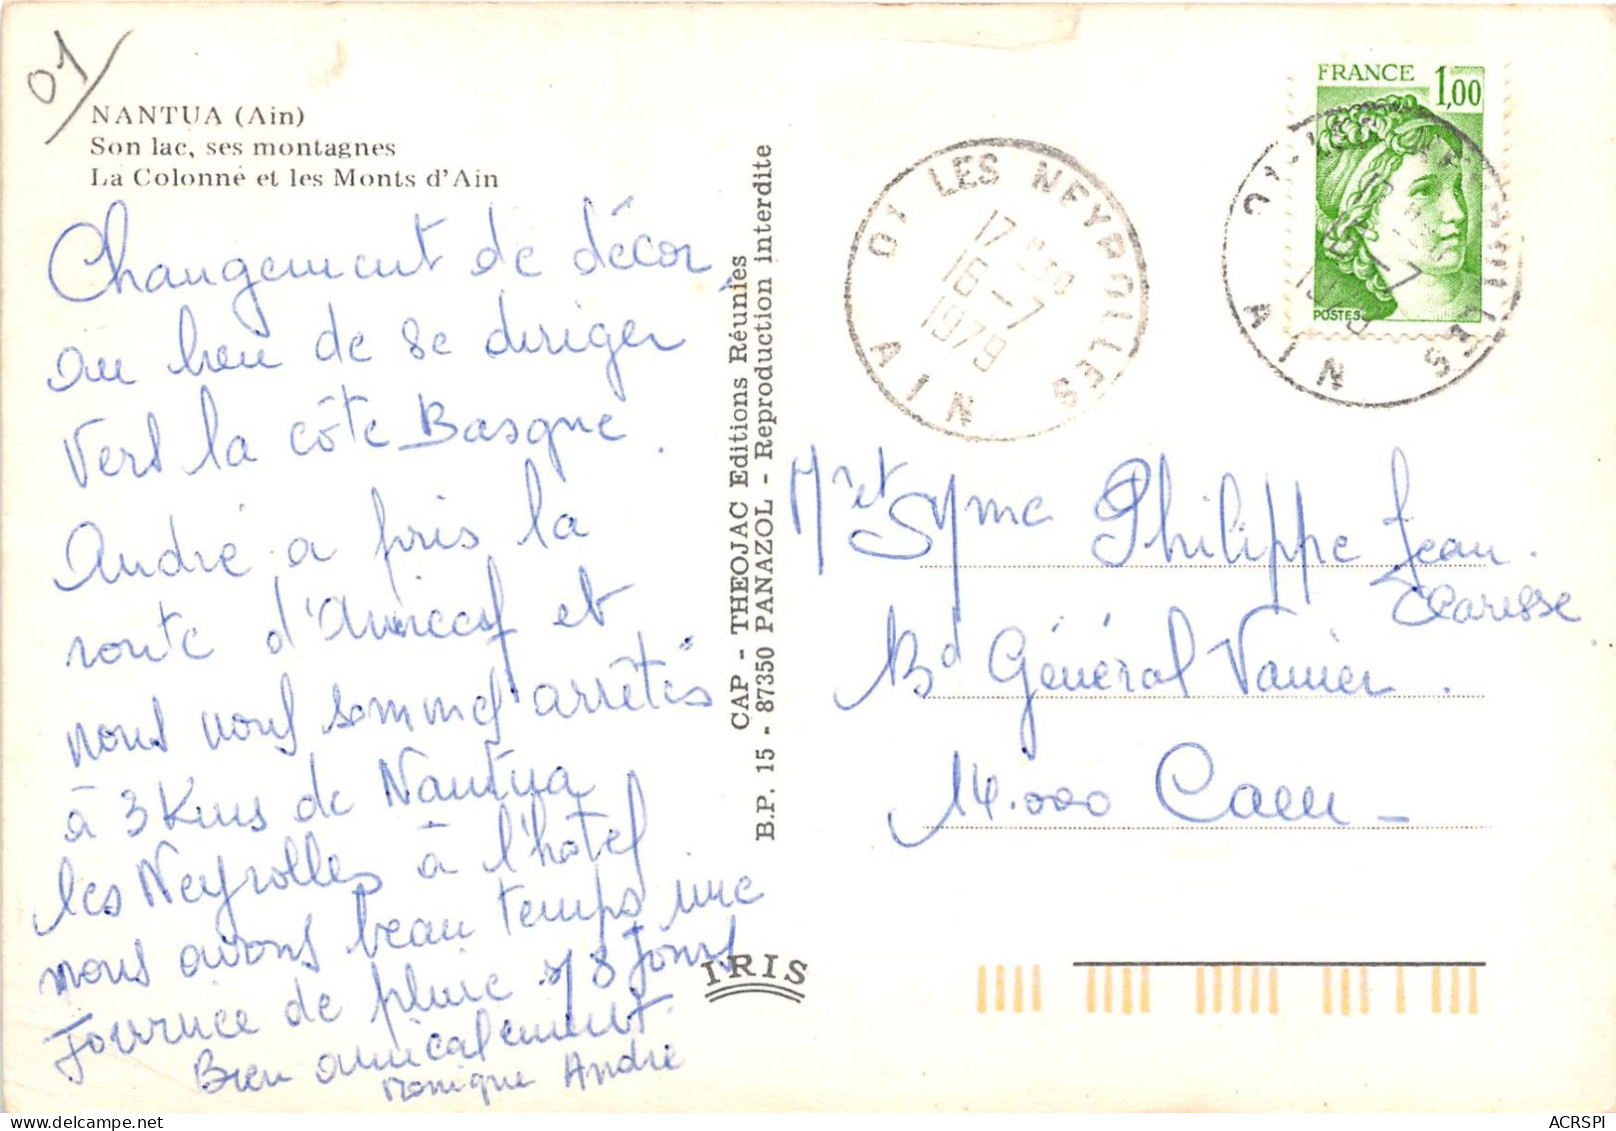 01
NANTUA (Ain)
Son lac, ses montagnes
La Colonne et les Monts d'Ain
Changement de décor
au lieu de se diriger
vers la côte Basque.
André a pris la
route d'Annecy et
nous nous sommes arrêtés
à 3 Kms de Nantua
les Neyrolles à l'hôtel
nous avons beau temps une
Journée de pluie s/ 8 Jours
Bien amicalement.
Monique André
CAP - THEOJAC Editions Réunies
B.P. 15 - 87350 PANAZOL - Reproduction interdite
IRIS
01 LES NEYROLLES
17 H 30
16 - 7
1979
AIN
FRANCE 1,00
POSTES
Mr et Mme Philippe Jean.
Bd Général Vanier.
14.000 Caen -
ACRSPI